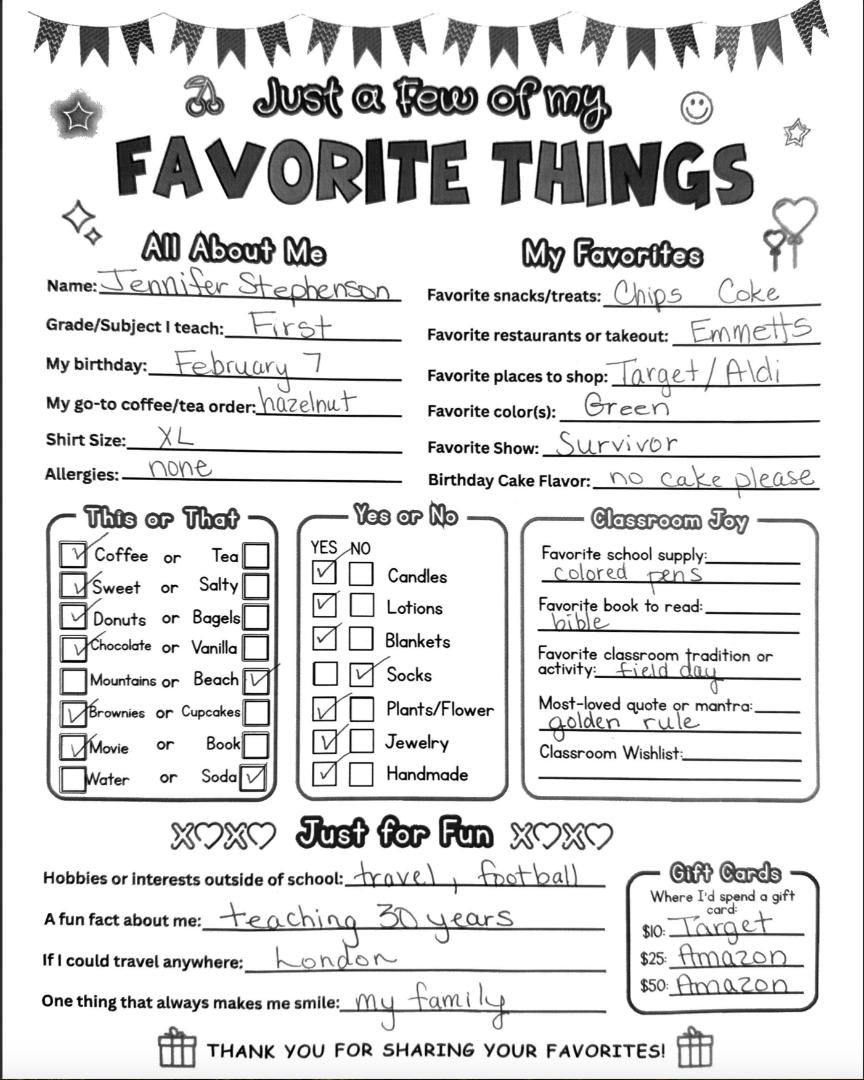 Just a Few of my
FAVORITE THINGS
All About Me
Name: Jennifer Stephenson
Grade/Subject I teach: First
My birthday: February 7
My go-to coffee/tea order: hazelnut
Shirt Size: XL
Allergies: none
My Favorites
Favorite snacks/treats: Chips Coke
Favorite restaurants or takeout: Emmetts
Favorite places to shop: Target/Aldi
Favorite color(s): Green
Favorite Show: Survivor
Birthday Cake Flavor: no cake please
This or That
Coffee or Tea
Sweet or Salty
Donuts or Bagels
Chocolate or Vanilla
Mountains or Beach
Brownies or Cupcakes
Movie or Book
Water or Soda
Yes or No
YES NO
Candles
Lotions
Blankets
Socks
Plants/Flower
Jewelry
Handmade
Classroom Joy
Favorite school supply:
colored pens
Favorite book to read:
bible
Favorite classroom tradition or
activity: field day
Most-loved quote or mantra:
golden rule
Classroom Wishlist:
XOXO Just for Fun XOXO
Hobbies or interests outside of school: travel, football
A fun fact about me: teaching 30 years
If I could travel anywhere: London
One thing that always makes me smile: my family
Gift Cards
Where I'd spend a gift
card:
$10: Target
$25: Amazon
$50: Amazon
THANK YOU FOR SHARING YOUR FAVORITES!